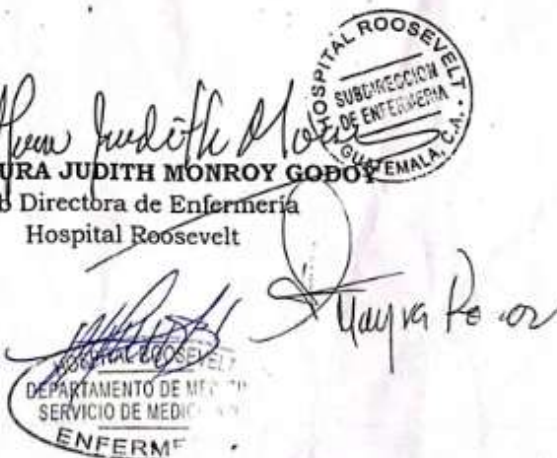 HOSPITAL ROOSEVELT
SUBDIRECCION
DE ENFERMERIA
GUATEMALA, C.A.
Judith
URA JUDITH MONROY GODOY
b Directora de Enfermería
Hospital Roosevelt
Mayra
HOSPITAL ROOSEVELT
DEPARTAMENTO DE
SERVICIO DE
ENFERME